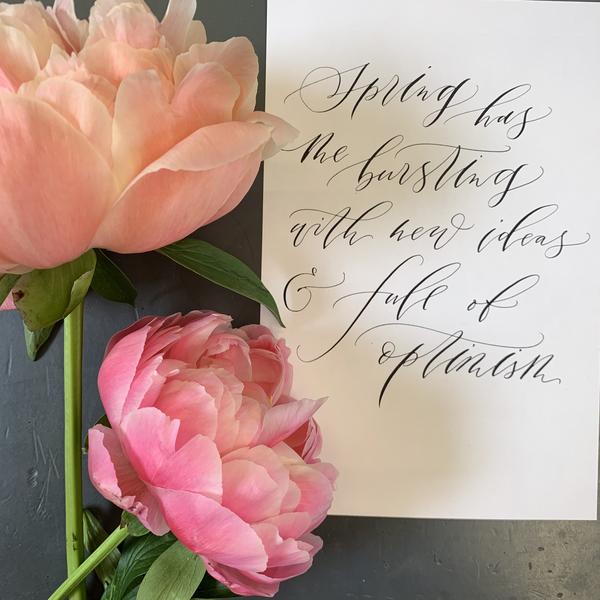 Spring has
me bursting
with new ideas
& full of
optimism